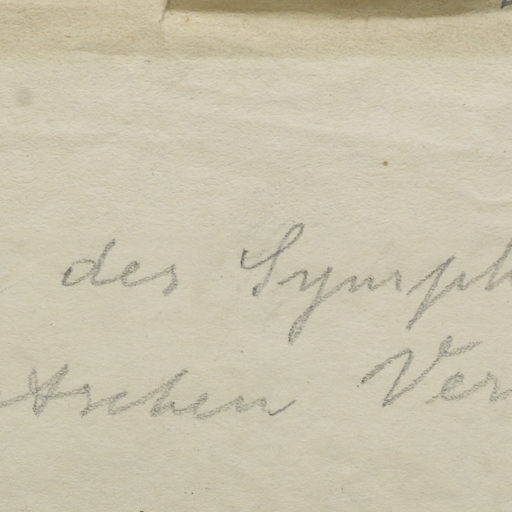 des Symph
tschen Ver